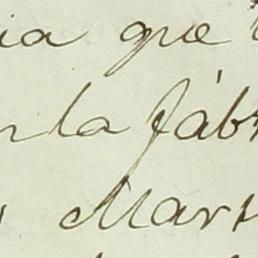 ia que
la fáb
Mars